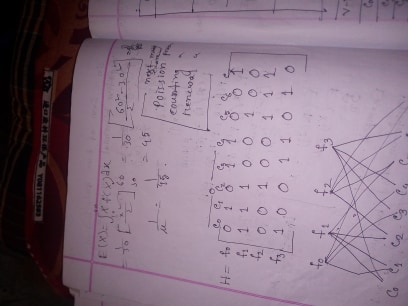 E(X) = ∫ x f(x) dx
= 1/30 [x²/2] 60 30 = 1/30 [60² - 30² / 2]
= 45
1/μ = 1/45
Poission
counting
Renewal
C0 C1 C2 C3 C4 C5 C6 C7
H = f0 0 1 0 1 1 0 0 1
f1 1 1 1 0 0 1 0 0
f2 0 0 1 0 0 1 1 1
f3 1 0 0 1 1 0 1 0
f0 f1 f2 f3
C0 C1 C2 C3 C4